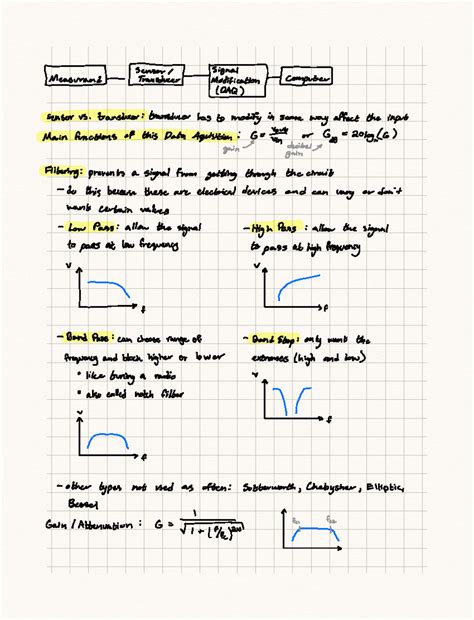 Measurand
Sensor/
Transducer
Signal
Modification
(DAQ)
Computer
Sensor vs. transducer: transducer has to modify in some way affect the input
Main functions of this Data Aquisition: G = Vout/Vin or GdB = 20log(G)
gain
decibel
gain
Filtering: prevents a signal from getting through the circuit
- do this because these are electrical devices and can vary or don't
want certain values
- Low Pass: allow the signal
to pass at low frequency
- High Pass: allow the signal
to pass at high frequency
V
f
V
f
- Band Pass: can choose range of
frequency and block higher or lower
• like tuning a radio
• also called notch filter
- Band Stop: only want the
extremes (high and low)
V
f
V
f
- other types not used as often: Butterworth, Chebyshev, Elliptic,
Bessel
Gain / Attenuation: G = 1/√1 + (f/fc)